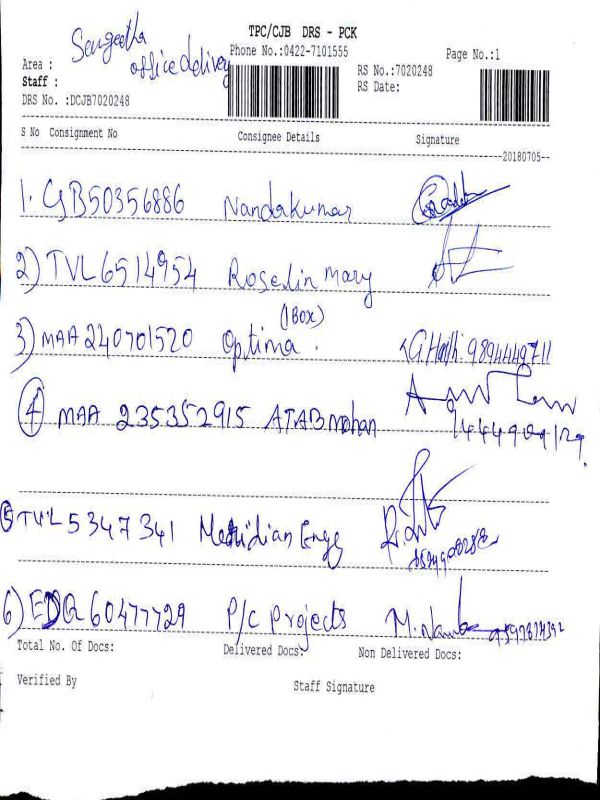 TPC/CJB DRS - PCK
Sangeetha
office delivery
Phone No.:0422-7101555
Page No.:1
Area :
RS No.:7020248
Staff :
RS Date:
DRS No. :DCJB7020248
S No Consignment No Consignee Details Signature
20180705
1. GB50356886 Nandakumar
2) TVL6514954 Roselin mary
3) MAA 240701520 Optima. (1BOX) 9894449711
4 MAA 235352915 ATAB mohan
9444909129
5 TVL5347341 Meridian Engg
6) EDQ60477729 P/C Projects M.
Total No. Of Docs: Delivered Docs: Non Delivered Docs:
Verified By Staff Signature